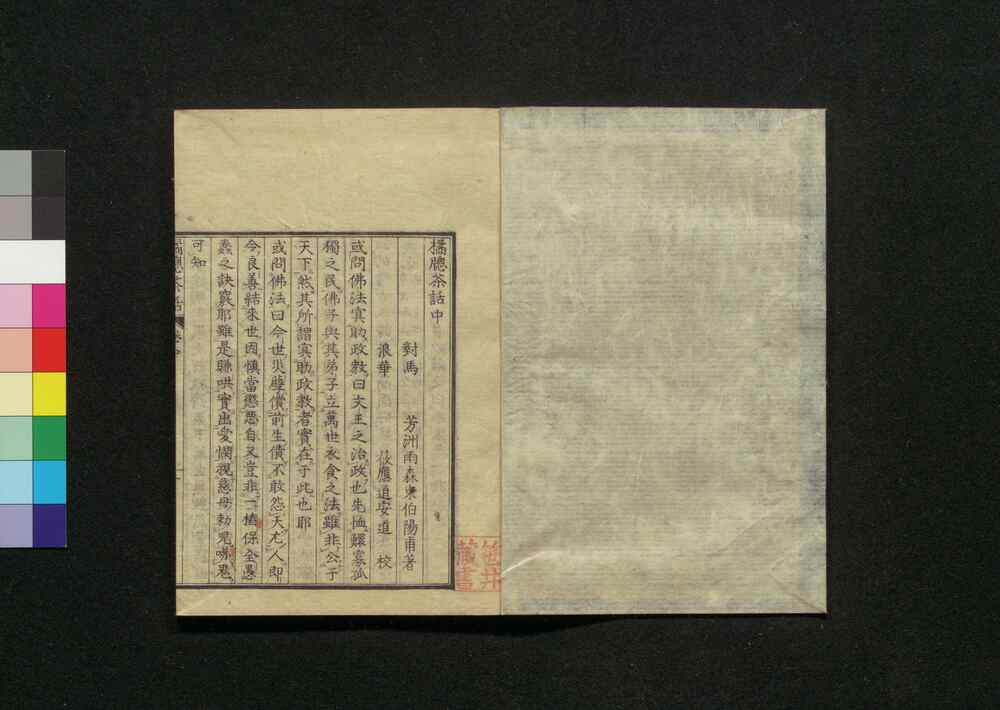 橘牕茶話中
對馬 芳洲雨森東伯陽甫著
浪華 莜應道安道 校
或問佛法寘助政教曰文王之治政也先恤鰥寡孤
獨之民佛子與其弟子立萬世衣食之法雖非公于
天下然其所謂寘助政教者實在于此也耶
或問佛法曰今世災孽償前生債不敢怨天尤人即
今良善結來世因慎當懲惡自又豈非一樁保全愚
蠢之訣竅耶雖是賺哄實出愛憫視慈母勑兒嚇
可知
橘牕茶話 卷中
笹井藏書